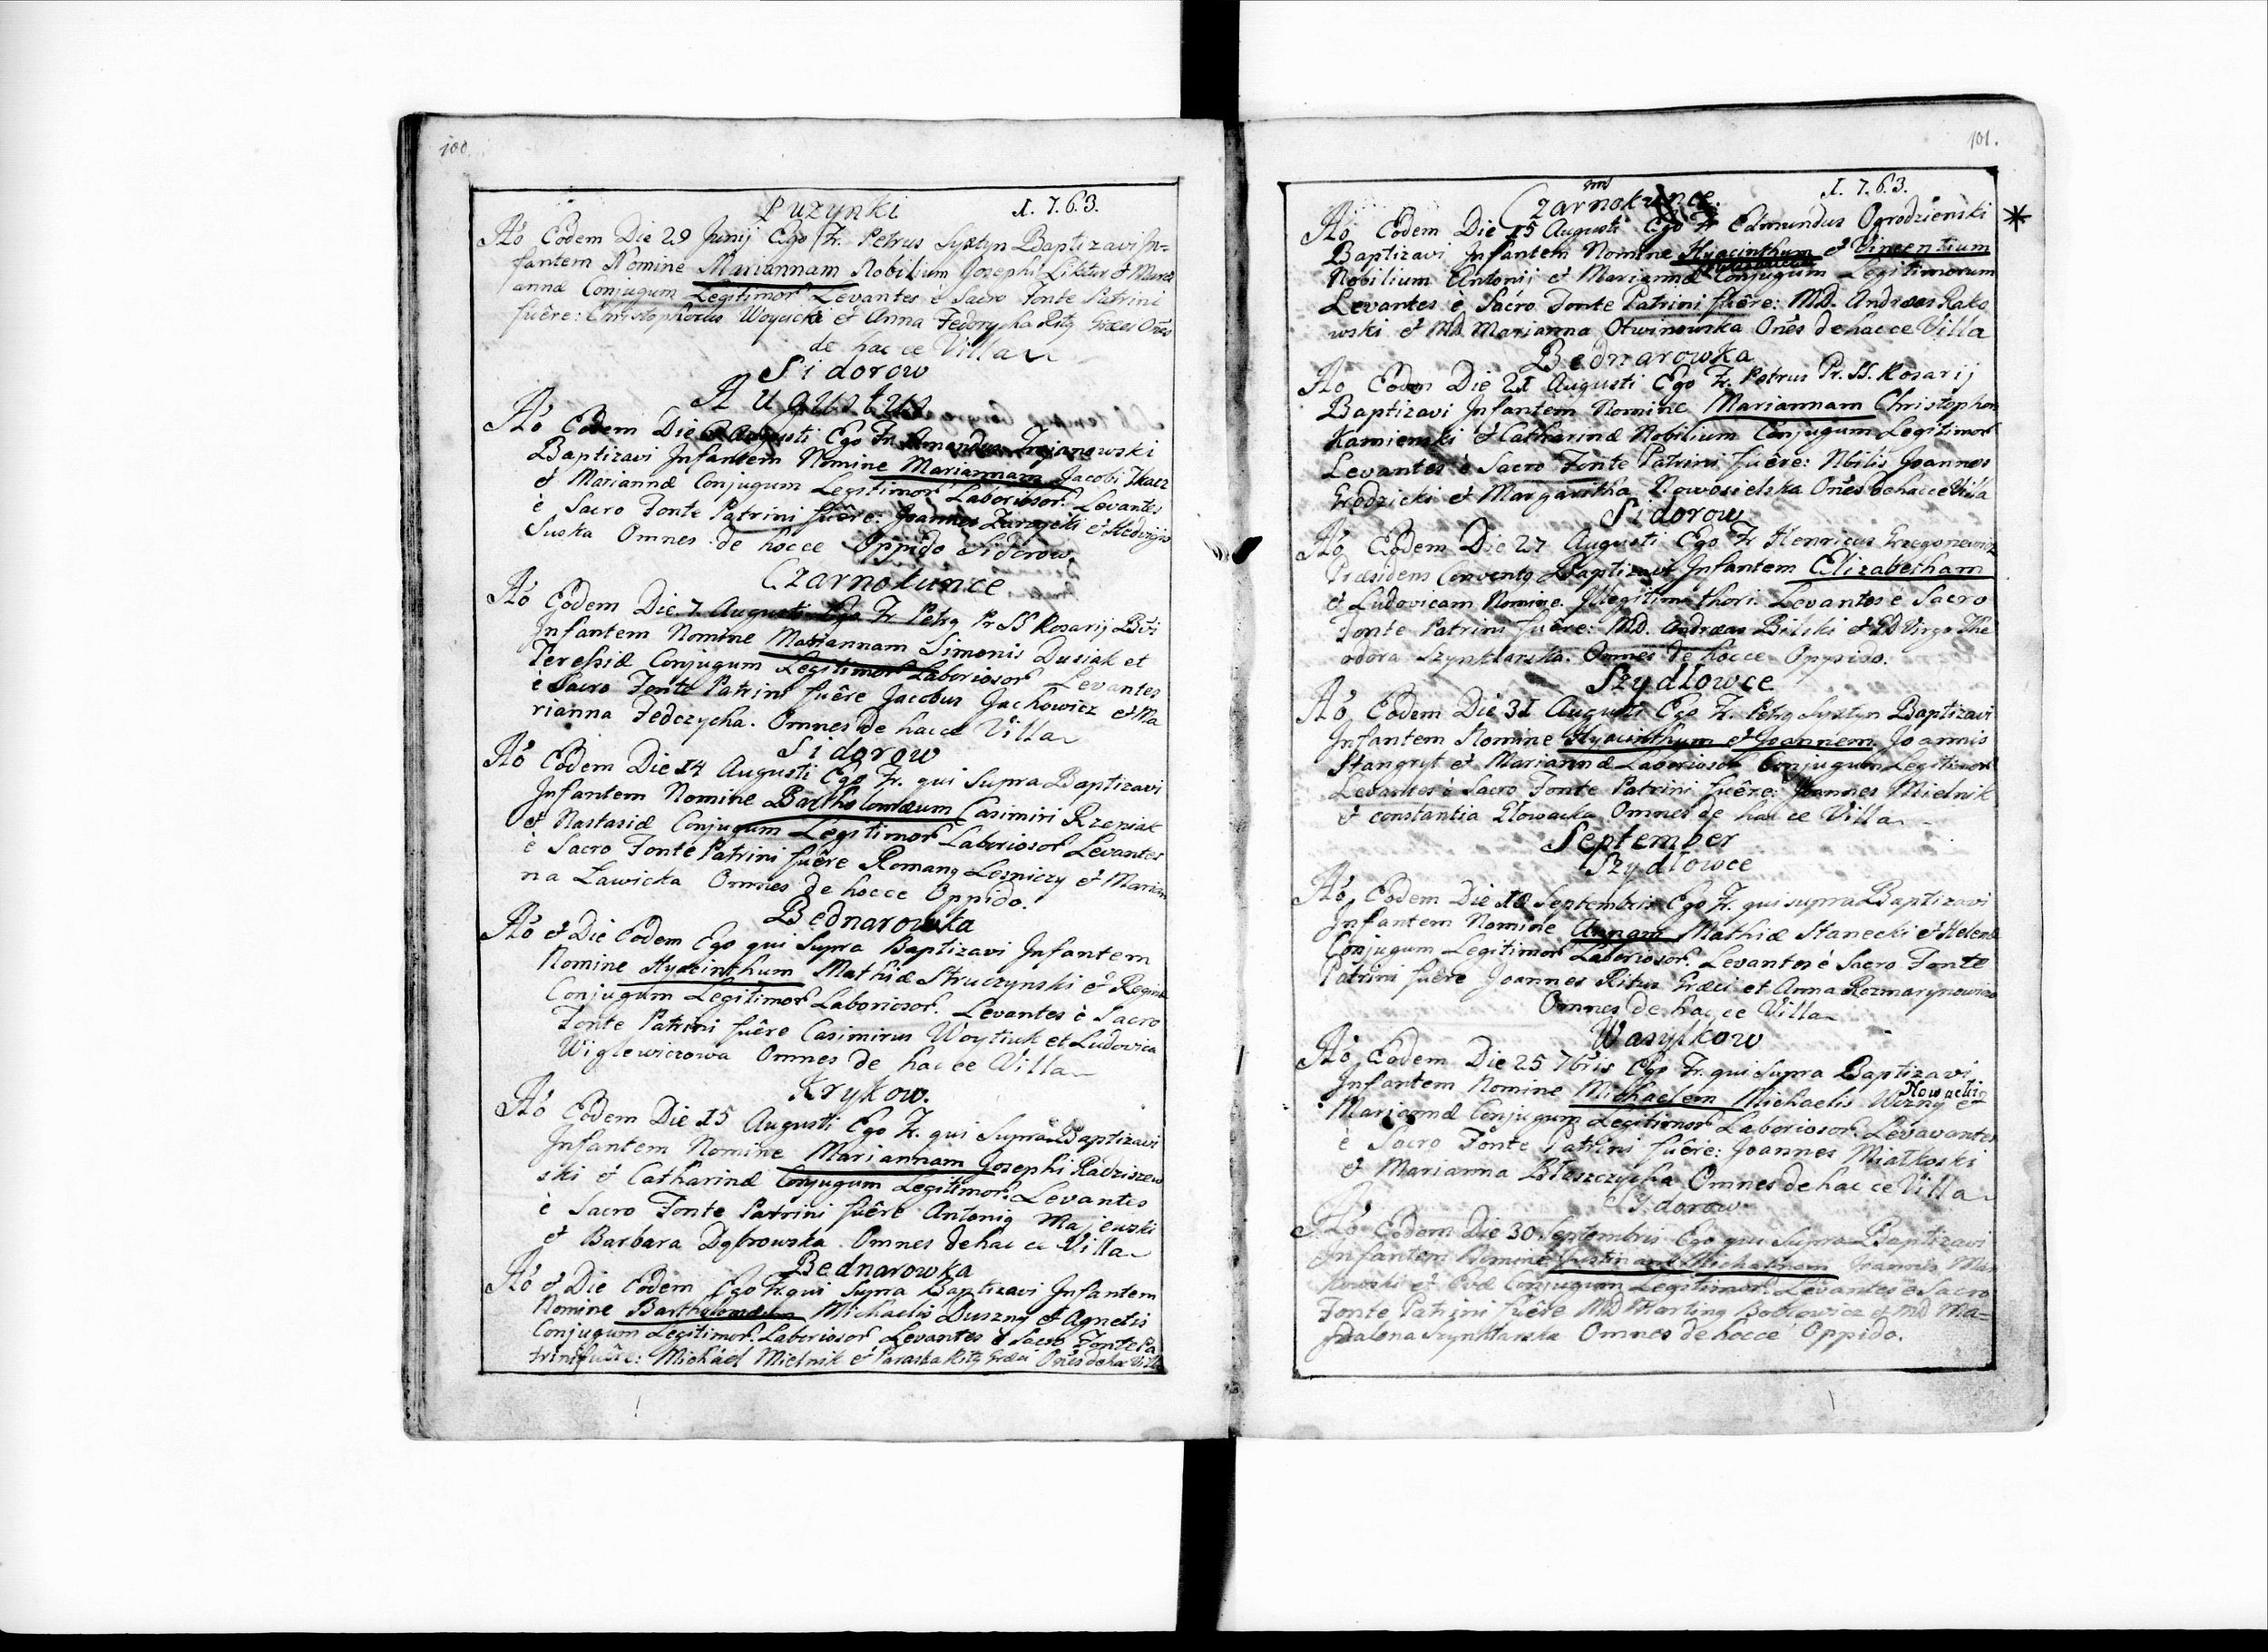 100.
Puzynki 1.7.6.3.
Aō Eodem Die 29 Junij Ego Fr. Petrus Syxtyn Baptizavi In-
fantem Nomine Mariannam Nobilium Josephi et Mari
annæ Conjugum Legitimor Levantes è Sacro Fonte Patrini
fuêre: Christophorus Woynicki et Anna Fedorycha Ritg Græci Onēs
de hac ce Villa
Sidorow
Augustus
Aō Eodem Die Augusti Ego Fr. Amandus Trojanowski
Baptizavi Infantem Nomine Mariannam Jacobi Tkacz
et Mariannæ Conjugum Legitimor Laboriosor. Levantes
è Sacro Fonte Patrini fuêre: Joannes et Hedvigis
Suska Omnes de hocce Oppido Siderow
Czarnokunce
Aō Eodem Die 7 Augusti Ego Fr Petrg Pr SS Rosarij Bvi
Infantem Nomine Mariannam Simonis Dusiak et
Teressiæ Conjugum Legitimor Laboriosor Levantes
è Sacro Fonte Patrini fuêre Jacobus Jachowicz et Ma
rianna Fedczycha. Omnes de hacce Villa
Sidorow
Aō Eodem Die 14 Augusti Ego Fr. qui Supra Baptizavi
Infantem Nomine Bartholomæum Casimiri Rzepiak
et Nastasiæ Conjugum Legitimor Laboriosor Levantes
è Sacro Fonte Patrini fuêre Romang Lesniczy et Marian
na Ławicka Omnes de hocce Oppido.
Bednarowka
Aō et Die Eodem Ego qui Supra Baptizavi Infantem
Nomine Hyacinthum Mathiæ Struczynski et Reginæ
Conjugum Legitimor Laboriosor. Levantes è Sacro
Fonte Patrini fuêre Casimirus Woytiuk et Ludovica
Wiglewiczowa Omnes de hac ce Villa
Krykow.
Aō Eodem Die 15 Augusti Ego Fr. qui Supra Baptizavi
Infantem Nomine Mariannam Josephi Radziszew
ski et Catharinæ Conjugum Legitimor. Levantes
è Sacro Fonte Patrini fuêre Antonig Majewski
et Barbara Dąbrowska Omnes de hac ce Villa
Bednarowka
Aō et Die Eodem Ego Fr. qui Supra Baptizavi Infantem
Nomine Bartholomæum Michaelis Duszny et Agnetis
Conjugum Legitimor. Laboriosor Levantes è Sacro Fonte Pa
trini fuêre: Michael Mielnik et Paraska Ritg Græci Onēs de hac Villa
101.
Czarnokunce. 1.7.6.3.
Aō Eodem Die 15 Augusti Ego Fr Edmundus Ogrodzienski *
Baptizavi Infantem Nomine Hyacinthum et Vincentium
Nobilium Antonij et Mariannæ Conjugum Legitimorum
Levantes è Sacro Fonte Patrini fuêre: MD. Andreas Rako
wski et MD. Marianna Otwinowska Onēs de hac ce Villa
Bednarowka
Aō Eodem Die 21 Augusti Ego Fr. Petrus Pr. SS. Rosarij
Baptizavi Infantem Nomine Mariannam Christophori
Kamienski et Catharinæ Nobilium Conjugum Legitimor
Levantes è Sacro Fonte Patrini fuêre: Nbilis Joannes
Grodzicki et Margaritha Nowosielska Onēs de hacce Villa
Sidorow
Aō Eodem Die 27 Augusti Ego Fr Henricus Grzegorzewicz
Præsidens Conventg Baptizavi Infantem Elizabetham
et Ludovicam Nomine. Illegitimi thori. Levantes è Sacro
Fonte Patrini fuêre: MD. Andreas Bilski et GD Virgo The
odora Szynklarska. Omnes de hocce Oppido.
Szydlowce
Aō Eodem Die 31 Augusti Ego Fr. Petrg Syxtyn Baptizavi
Infantem Nomine Hyacinthum et Joannem Joannis
Stangryt et Mariannæ Laboriosor Conjugum Legitimor
Levantes è Sacro Fonte Patrini fuêre: Joannes Mielnik
et constantia Głowacka Omnes de hac ce Villa
September
Szydlowce
Aō Eodem Die 18 Septembris Ego Fr. qui supra Baptizavi
Infantem Nomine Annam Mathiæ Stanecki et Helenæ
Conjugum Legitimor Laboriosor. Levantes è Sacro Fonte
Patrini fuêre Joannes Ritus Græci et Anna Rozmarynowicz
Omnes de hac ce Villa
Wasylkow
Aō Eodem Die 25 7bris Ego Fr. qui Supra Baptizavi
Infantem Nomine Michaelem Michaelis Wozny Nowacki et
Mariannæ Conjugum Legitimor Laboriosor. Levavantes
è Sacro Fonte Patrini fuêre: Joannes Miałkoski
et Marianna Błaszczycha Omnes de hac ce Villa
Sydorow
Aō Eodem Die 30 Septembris Ego qui Supra Baptizavi
Infantem Nomine Justinam Michalinam Joannis
et Evæ Conjugum Legitimor. Levantes è Sacro
Fonte Patrini fuêre MD Marting Botkowicz et MD Ma-
gdalena Szynklarska Omnes de hocce Oppido.